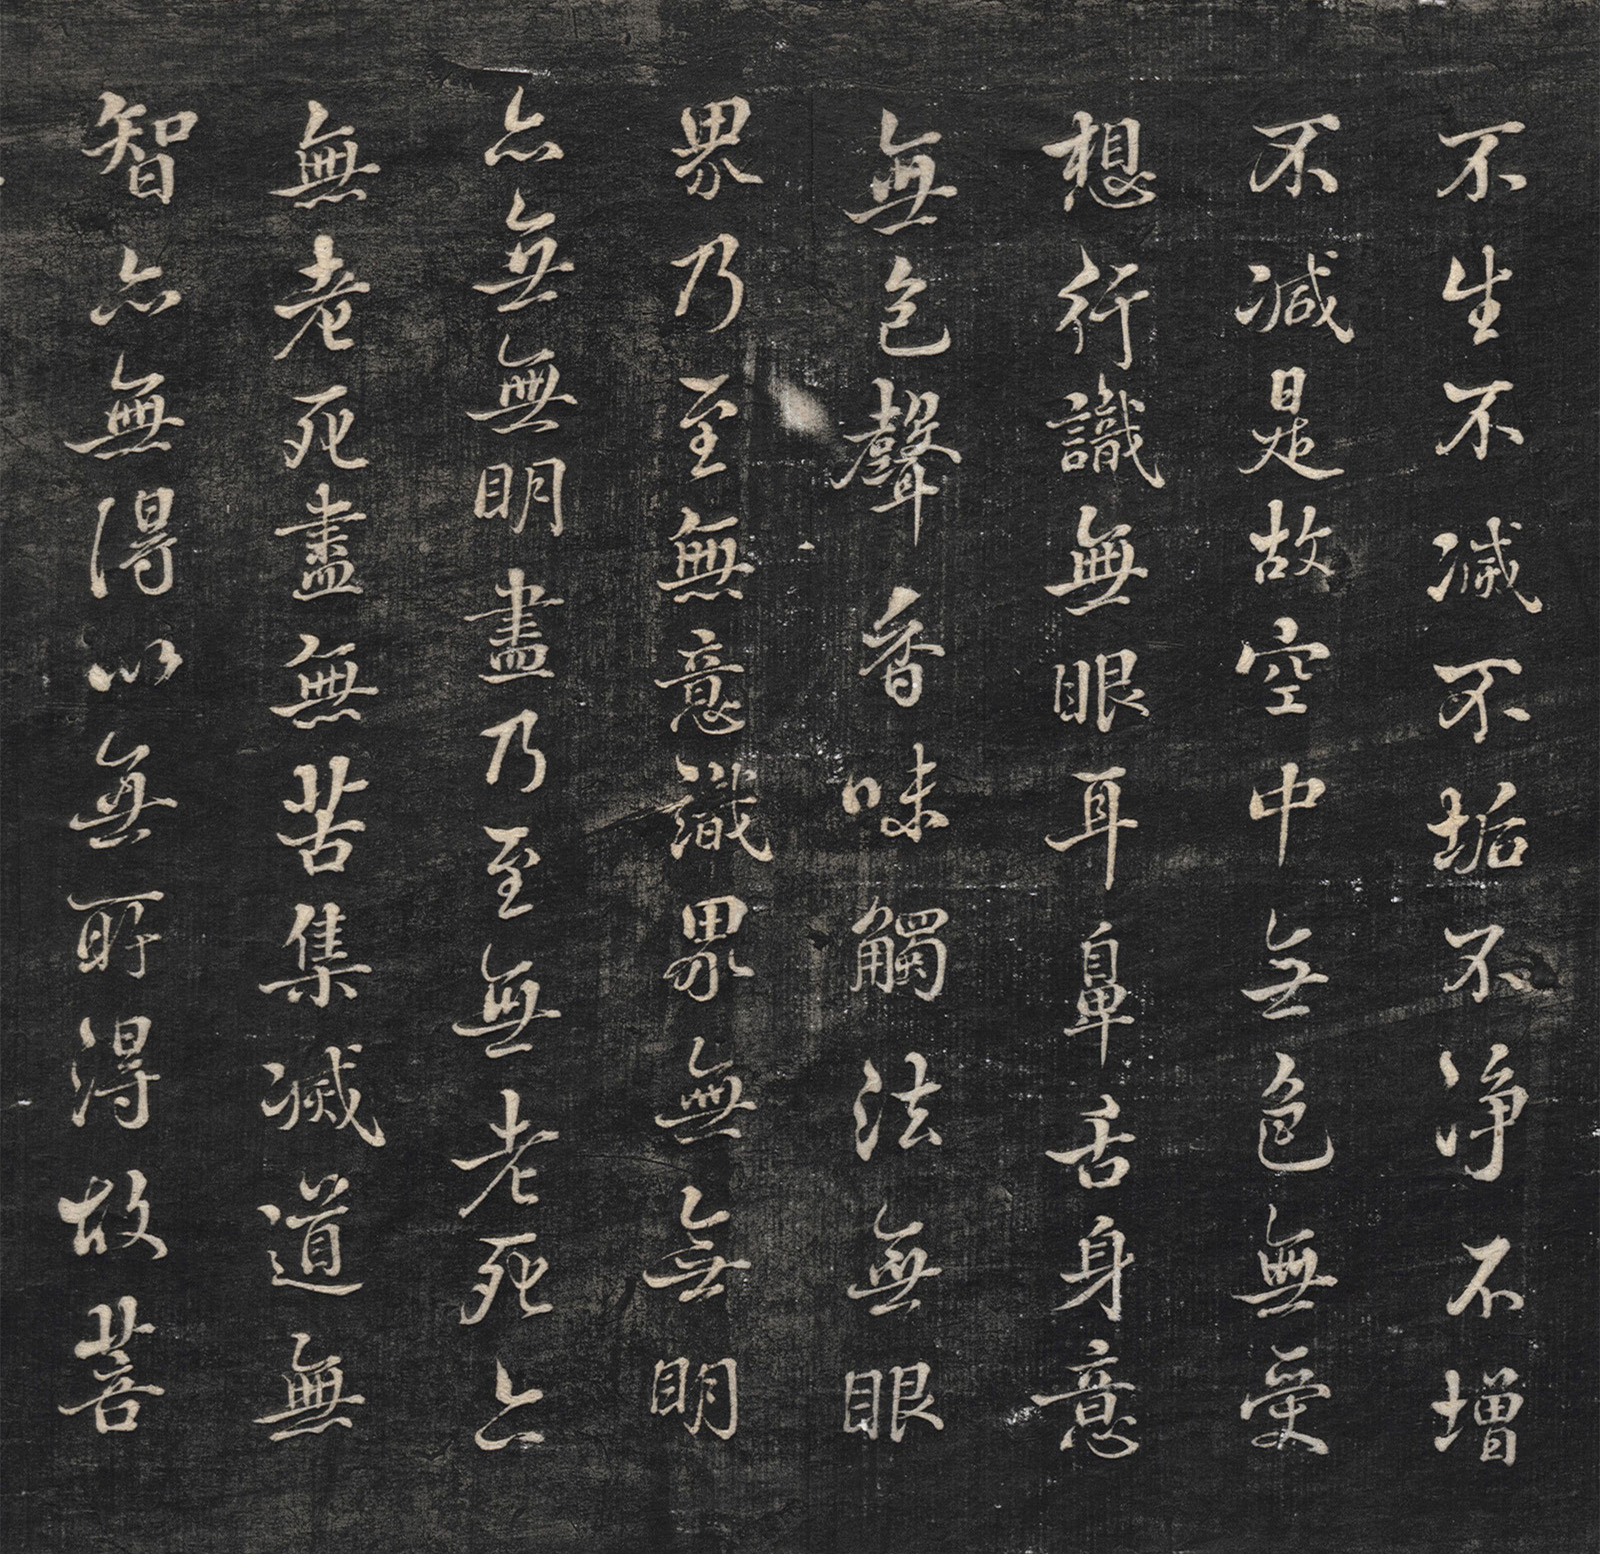 不生不滅不垢不淨不增
不減是故空中无色無受
想行識無眼耳鼻舌身意
無色聲香味觸法無眼
界乃至無意識界無無明
亦無無明盡乃至無老死亦
無老死盡無苦集滅道無
智亦無得以無所得故菩